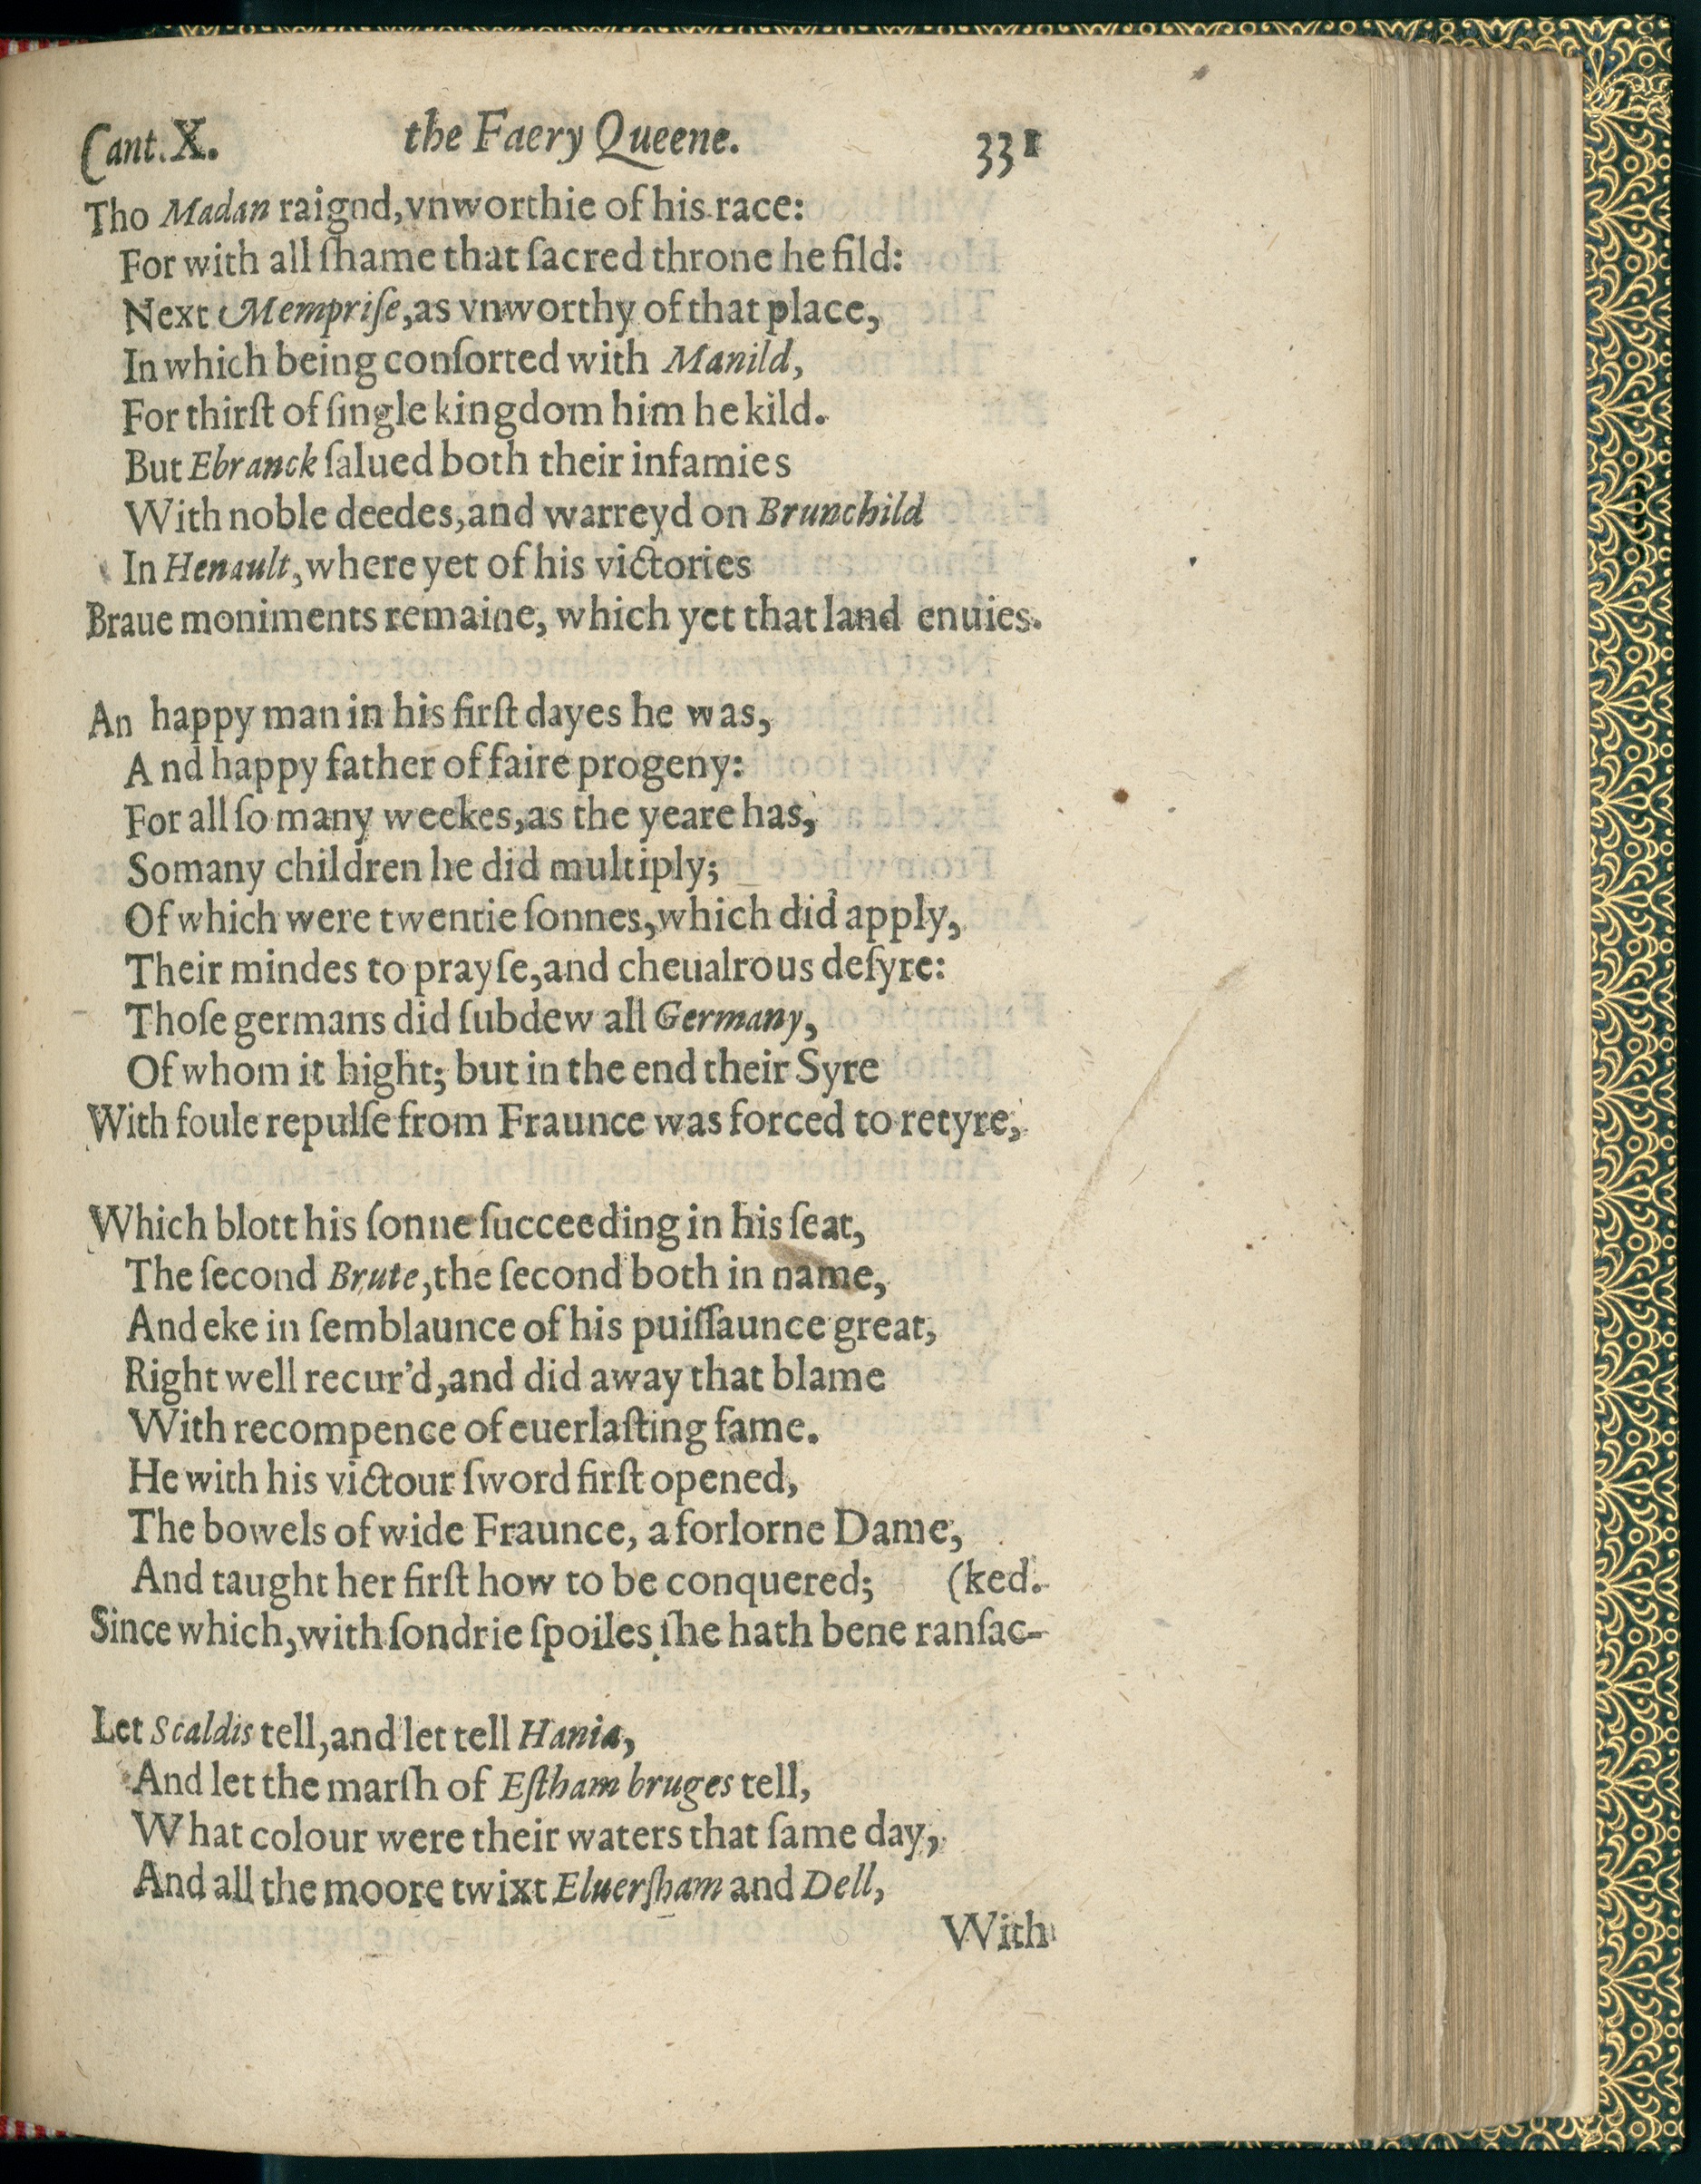 Cant. X. the Faery Queene. 331
Tho Madan raignd, vnworthie of his race:
For with all ſhame that ſacred throne he fild:
Next Mempriſe, as vnworthy of that place,
In which being conſorted with Manild,
For thirſt of ſingle kingdom him he kild.
But Ebranck ſalued both their infamies
With noble deedes, and warreyd on Brunchild
In Henault, where yet of his victories
Braue moniments remaine, which yet that land enuies.
An happy man in his firſt dayes he was,
And happy father of faire progeny:
For all ſo many weekes, as the yeare has,
So many children he did multiply;
Of which were twentie ſonnes, which did apply,
Their mindes to prayſe, and cheualrous deſyre:
Thoſe germans did ſubdew all Germany,
Of whom it hight; but in the end their Syre
With foule repulſe from Fraunce was forced to retyre;
Which blott his ſonne ſucceeding in his ſeat,
The ſecond Brute, the ſecond both in name,
And eke in ſemblaunce of his puiſſaunce great,
Right well recur'd, and did away that blame
With recompence of euerlaſting fame.
He with his victour ſword firſt opened,
The bowels of wide Fraunce, a forlorne Dame,
And taught her firſt how to be conquered; (ked.
Since which, with ſondrie ſpoiles ſhe hath bene ranſac-
Let Scaldis tell, and let tell Hania,
And let the marſh of Eſtham bruges tell,
What colour were their waters that ſame day,
And all the moore twixt Eluerſham and Dell,
With